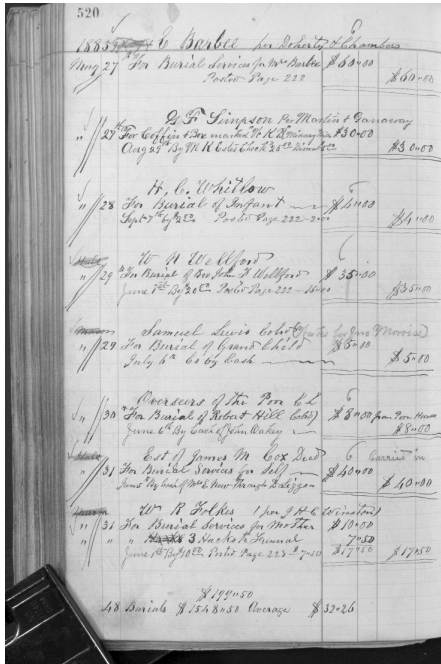 520
1885 E Barbee per Doherty & Chambers
May 27 For Burial Services for Mrs Barbee $60.00
Posted Page 222 $60.00
G F Simpson Per Martin & Ganaway
" 27 For Coffin & Box marked W. K. $30.00
Aug 29 By M K $30.00
H, C. Whitlow
" 28 For Burial of Infant $4.00
Sept 7th By $2.00 Posted Page 222 - 2.00 $4.00
W N Wellford
" 29 For Burial of Bro John F Wellford $35.00
June 1st By 20.00 Posted Page 222 - 15.00 $35.00
Samuel Lewis Cold
" 29 For Burial of Grand Child $5.00
July 6th Cr By Cash $5.00
Overseers of the Poor
" 30 For Burial of Robert Hill Cold $8.00 from Poor House
June 6th By Cash of John Oakey $8.00
Est of James M Cox Dead Carried on
" 31 For Burial Services for Self $40.00
June By Cash of Mrs E $40.00
W R Folkes (per J H C Winston)
" 31 For Burial Services for Mother $10.00
" " 3 Hacks to Funeral 7.50
June 1st By 10.00 Posted Page 223 7.50 $17.50 $17.50
$199.50
48 Burials $1548.50 Average $32.26